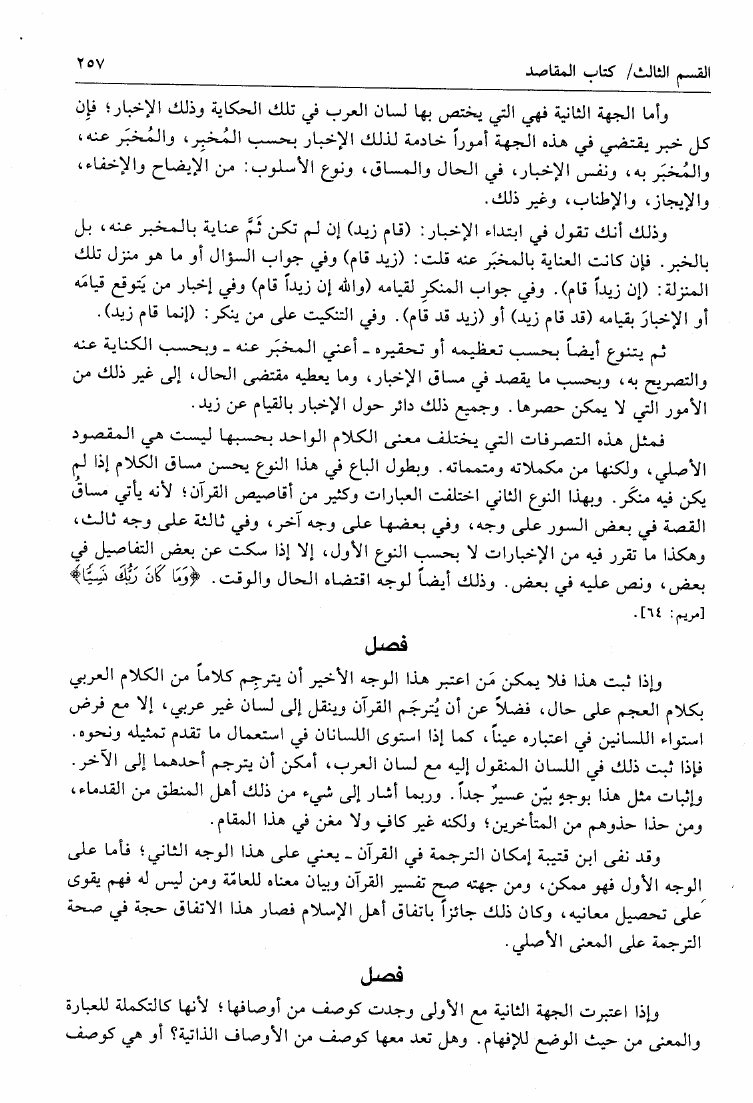 القسم الثالث/ كتاب المقاصد
٢٥٧
وأما الجهة الثانية فهي التي يختص بها لسان العرب في تلك الحكاية وذلك الإخبار؛ فإن
كل خبر يقتضي في هذه الجهة أموراً خادمة لذلك الإخبار بحسب المُخبِر، والمُخبَر عنه،
والمُخبَر به، ونفس الإخبار، في الحال والمساق، ونوع الأسلوب: من الإيضاح والإخفاء،
والإيجاز، والإطناب، وغير ذلك.
وذلك أنك تقول في ابتداء الإخبار: (قام زيد) إن لم تكن ثَمَّ عناية بالمخبر عنه، بل
بالخبر. فإن كانت العناية بالمخبَر عنه قلت: (زيد قام) وفي جواب السؤال أو ما هو منزل تلك
المنزلة: (إن زيداً قام). وفي جواب المنكرِ لقيامه (والله إن زيداً قام) وفي إخبار من يَتوقع قيامَه
أو الإخبارَ بقيامه (قد قام زيد) أو (زيد قد قام). وفي التنكيت على من ينكر: (إنما قام زيد).
ثم يتنوع أيضاً بحسب تعظيمه أو تحقيره ـ أعني المخبَر عنه ـ وبحسب الكناية عنه
والتصريح به، وبحسب ما يقصد في مساق الإخبار، وما يعطيه مقتضى الحال، إلى غير ذلك من
الأمور التي لا يمكن حصرها. وجميع ذلك دائر حول الإخبار بالقيام عن زيد.
فمثل هذه التصرفات التي يختلف معنى الكلام الواحد بحسبها ليست هي المقصود
الأصلي، ولكنها من مكملاته ومتمماته. وبطول الباع في هذا النوع يحسن مساق الكلام إذا لم
يكن فيه منكَر. وبهذا النوع الثاني اختلفت العبارات وكثير من أقاصيص القرآن؛ لأنه يأتي مساقُ
القصة في بعض السور على وجه، وفي بعضها على وجه آخر، وفي ثالثة على وجه ثالث،
وهكذا ما تقرر فيه من الإخبارات لا بحسب النوع الأول، إلا إذا سكت عن بعض التفاصيل في
بعض، ونص عليه في بعض. وذلك أيضاً لوجه اقتضاه الحال والوقت. ﴿وَمَا كَانَ رَبُّكَ نَسِيًّا﴾
[مريم: ٦٤].
فصل
وإذا ثبت هذا فلا يمكن مَن اعتبر هذا الوجه الأخير أن يترجِم كلاماً من الكلام العربي
بكلام العجم على حال، فضلاً عن أن يُترجَم القرآن وينقل إلى لسان غير عربي، إلا مع فرض
استواء اللسانين في اعتباره عيناً، كما إذا استوى اللسانان في استعمال ما تقدم تمثيله ونحوه.
فإذا ثبت ذلك في اللسان المنقول إليه مع لسان العرب، أمكن أن يترجم أحدهما إلى الآخر.
وإثبات مثل هذا بوجهٍ بيّن عسيرٌ جداً. وربما أشار إلى شيء من ذلك أهل المنطق من القدماء،
ومن حذا حذوهم من المتأخرين؛ ولكنه غير كافٍ ولا مغن في هذا المقام.
وقد نفى ابن قتيبة إمكان الترجمة في القرآن ـ يعني على هذا الوجه الثاني؛ فأما على
الوجه الأول فهو ممكن، ومن جهته صح تفسير القرآن وبيان معناه للعامّة ومن ليس له فهم يقوى
على تحصيل معانيه، وكان ذلك جائزاً باتفاق أهل الإسلام فصار هذا الاتفاق حجة في صحة
الترجمة على المعنى الأصلي.
فصل
وإذا اعتبرت الجهة الثانية مع الأولى وجدت كوصف من أوصافها؛ لأنها كالتكملة للعبارة
والمعنى من حيث الوضع للإفهام. وهل تعد معها كوصف من الأوصاف الذاتية؟ أو هي كوصف